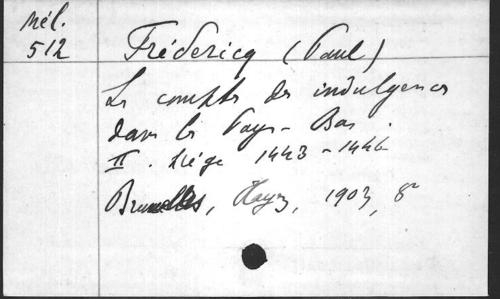 Mél.
512
Frédericq (Paul)
Les comptes des indulgences
dans les Pays-Bas.
II. Liége 1443-1446
Bruxelles, Hayez, 1903, 8°